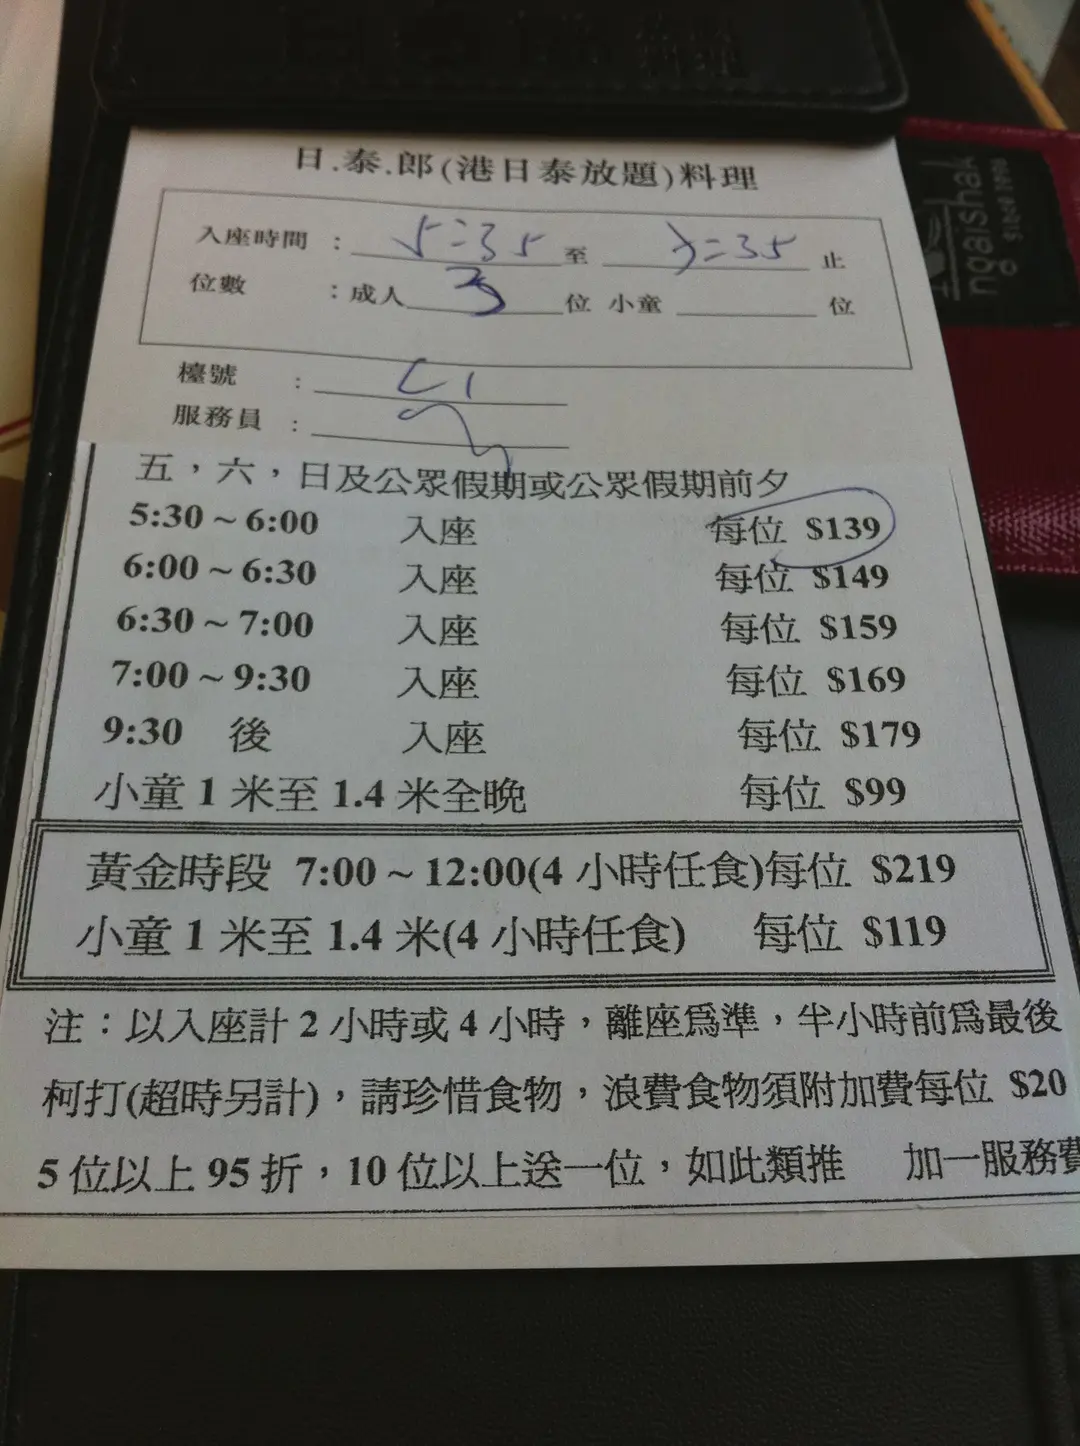 日.泰.郎(港日泰放題)料理
入座時間 : 5:35 至 7:35 止
位數 : 成人 3 位 小童 位
檯號 : C1
服務員 :
五，六，日及公眾假期或公眾假期前夕
5:30 ~ 6:00 入座 每位 $139
6:00 ~ 6:30 入座 每位 $149
6:30 ~ 7:00 入座 每位 $159
7:00 ~ 9:30 入座 每位 $169
9:30 後 入座 每位 $179
小童 1 米至 1.4 米全晚 每位 $99
黃金時段 7:00 ~ 12:00(4 小時任食)每位 $219
小童 1 米至 1.4 米(4 小時任食) 每位 $119
注：以入座計 2 小時或 4 小時，離座爲準，半小時前爲最後
柯打(超時另計)，請珍惜食物，浪費食物須附加費每位 $20
5 位以上 95 折，10 位以上送一位，如此類推 加一服務費
ngaishak
since 2008